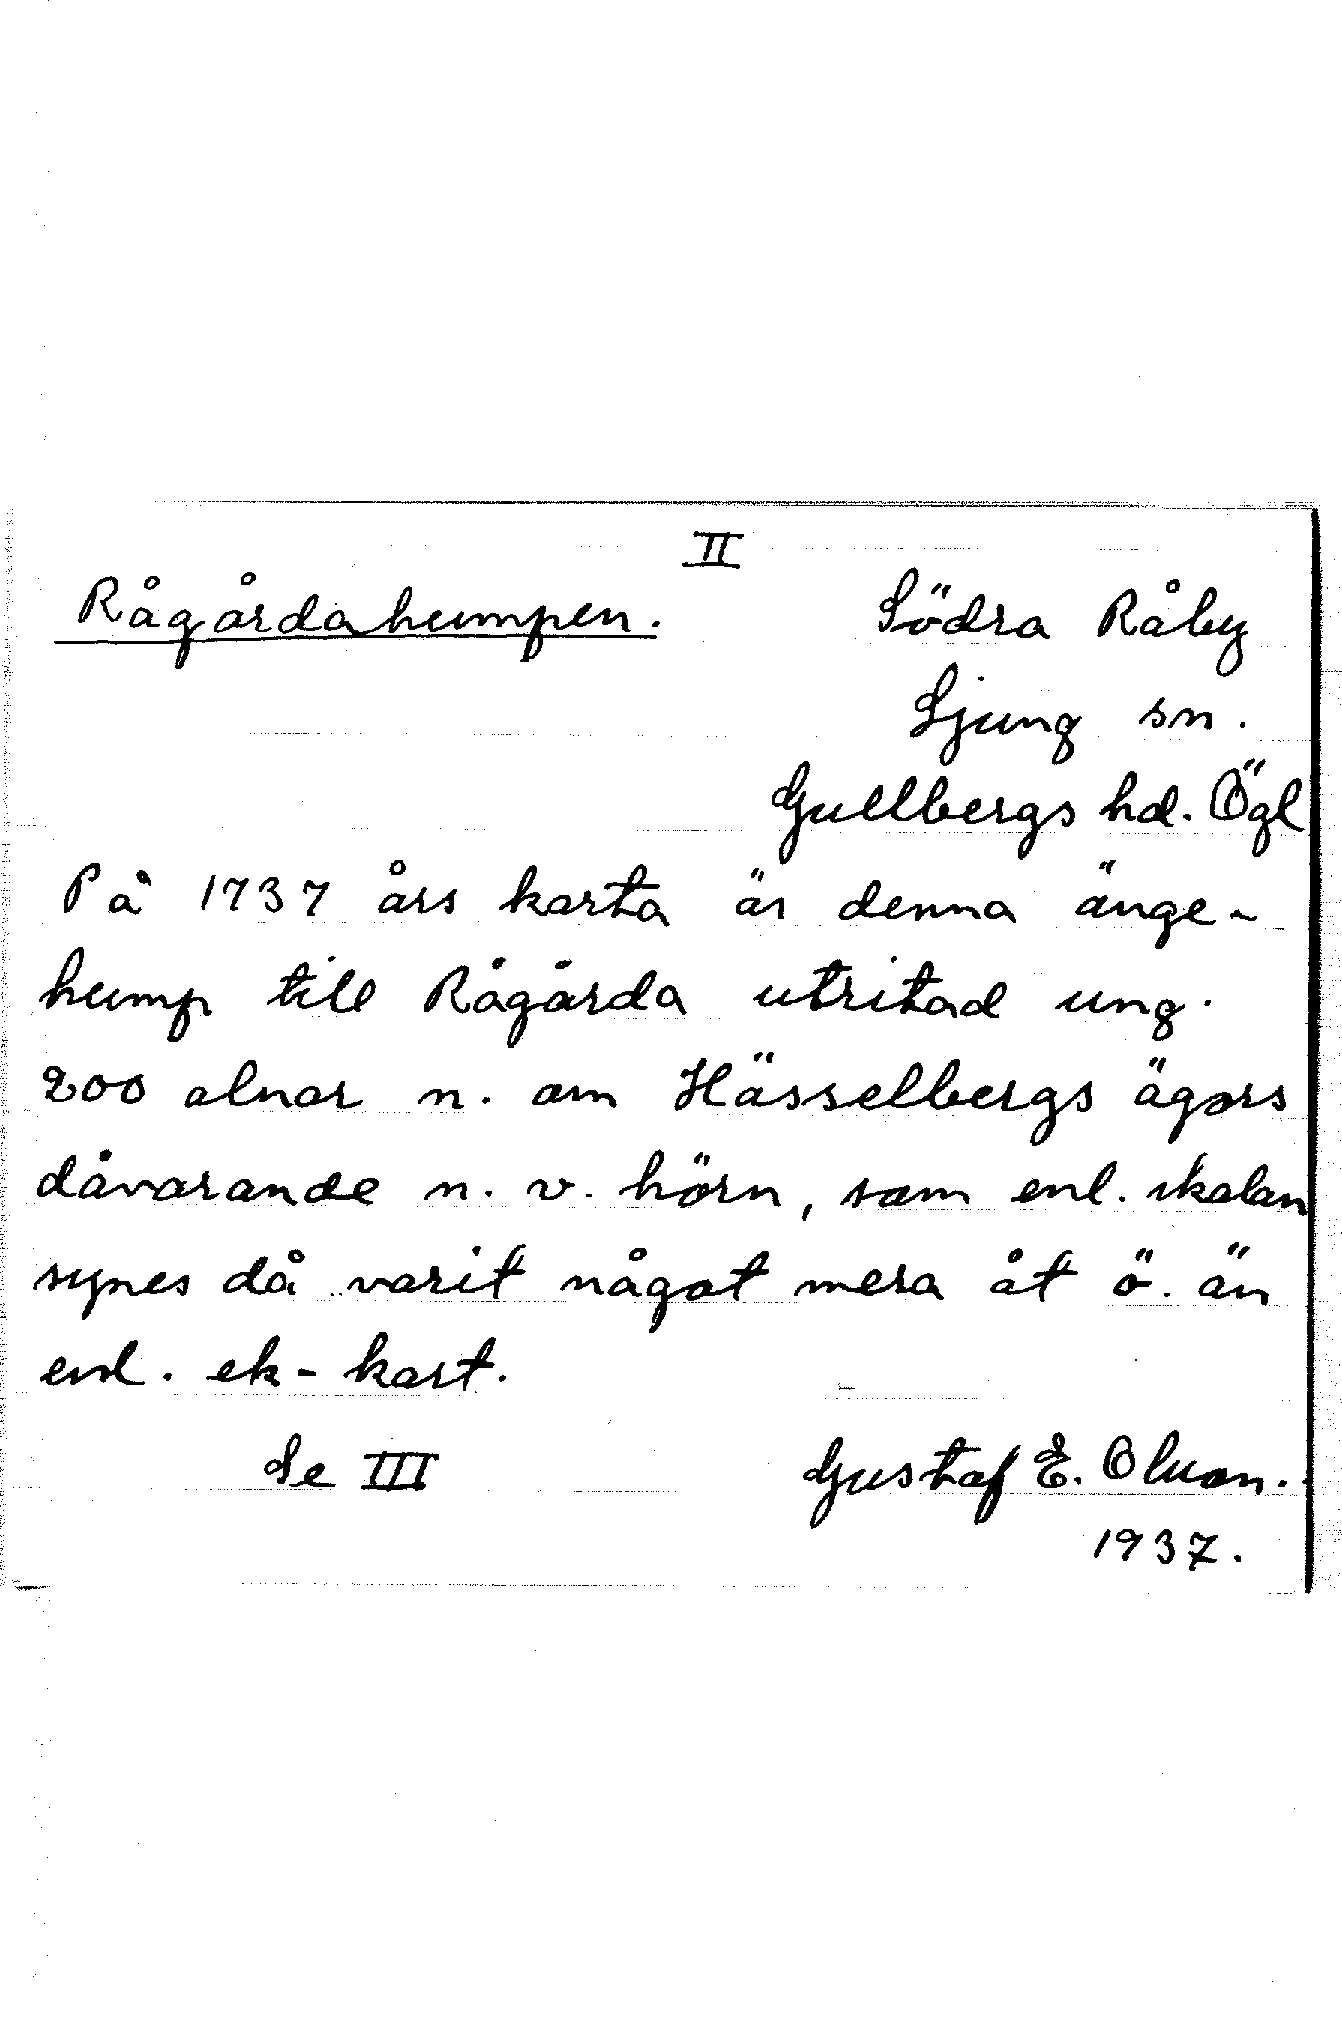 II
Rågårdahumpen. Södra Råby
Ljung sn.
Gullbergs hd. Ögl
På 1737 års karta är denna änge-
hump till Rågårda utritad ung.
200 alnar n. om Hässelbergs ägors
dåvarande n. v. hörn, som enl. skalan
synes då varit något mera åt ö. än
enl. ek-kart.
Se III Gustaf E. Olson.
1937.